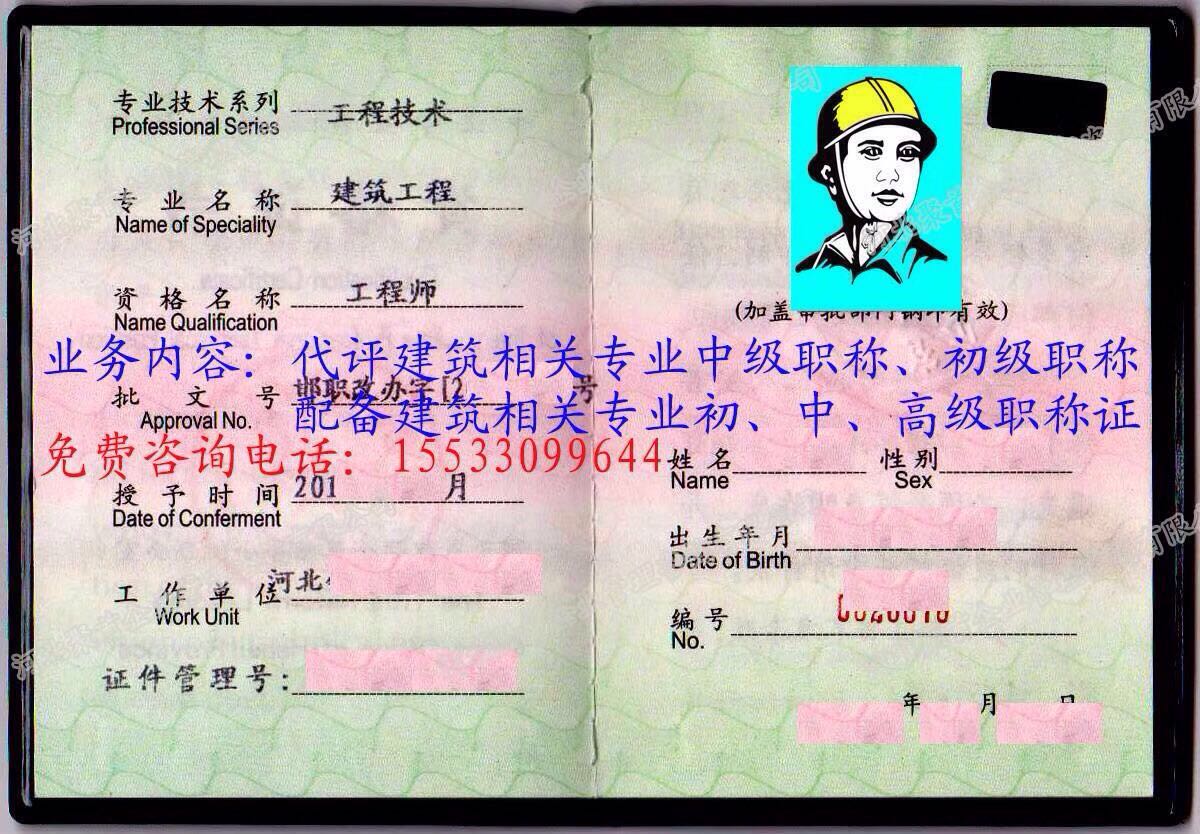 专业技术系列 工程技术
Professional Series
专业名称 建筑工程
Name of Speciality
资格名称 工程师
Name Qualification
(加盖审批部门钢印有效)
业务内容：代评建筑相关专业中级职称、初级职称
批文号 邯职改办字[2 号
Approval No.
配备建筑相关专业初、中、高级职称证
免费咨询电话：15533099644
授予时间 201 月
Date of Conferment
工作单位 河北
Work Unit
证件管理号：
姓名 性别
Name Sex
出生年月
Date of Birth
编号
No.
年 月 日